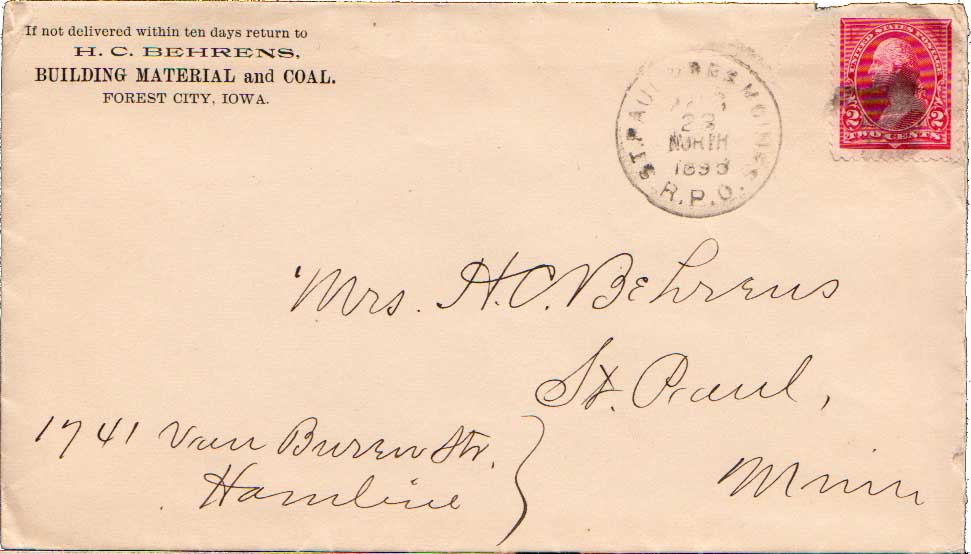 If not delivered within ten days return to
H. C. BEHRENS,
BUILDING MATERIAL and COAL.
FOREST CITY, IOWA.
UNITED STATES POSTAGE
2 2
TWO CENTS
ST. PAUL DES MOINES
28
NORTH
1898
R.P.O.
Mrs. H.C. Behrens
St. Paul,
1741 Van Buren Str.
Hamline
Minn